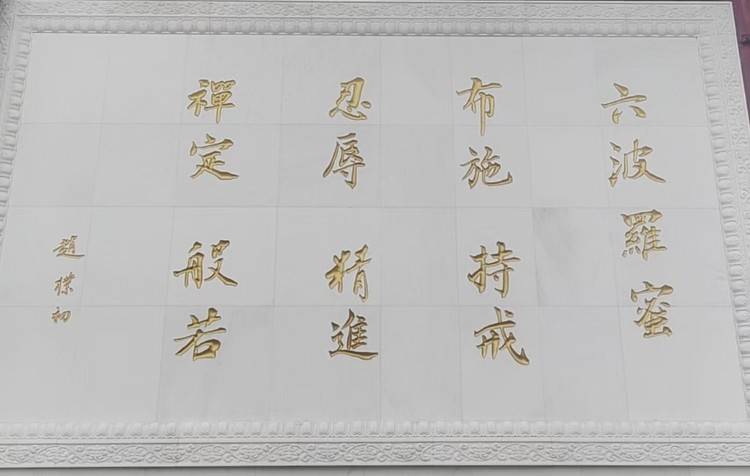 六波羅蜜
布施 持戒
忍辱 精進
禪定 般若
趙樸初